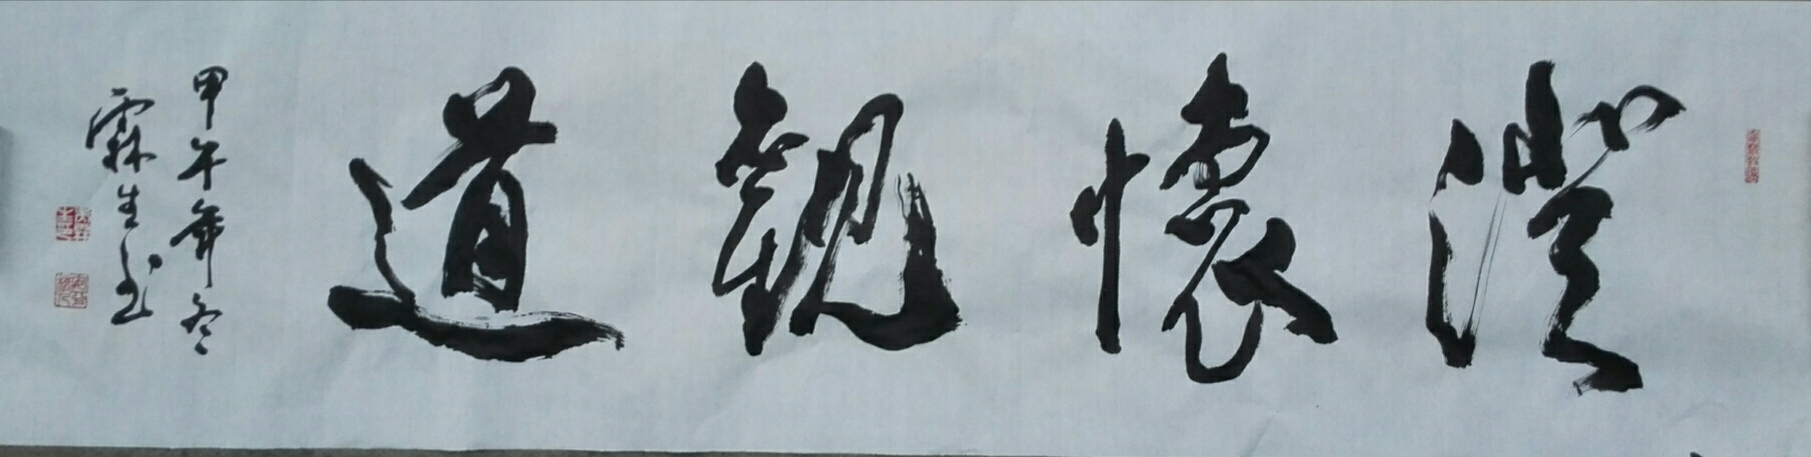 澄懷觀道
甲午年冬
霖生书